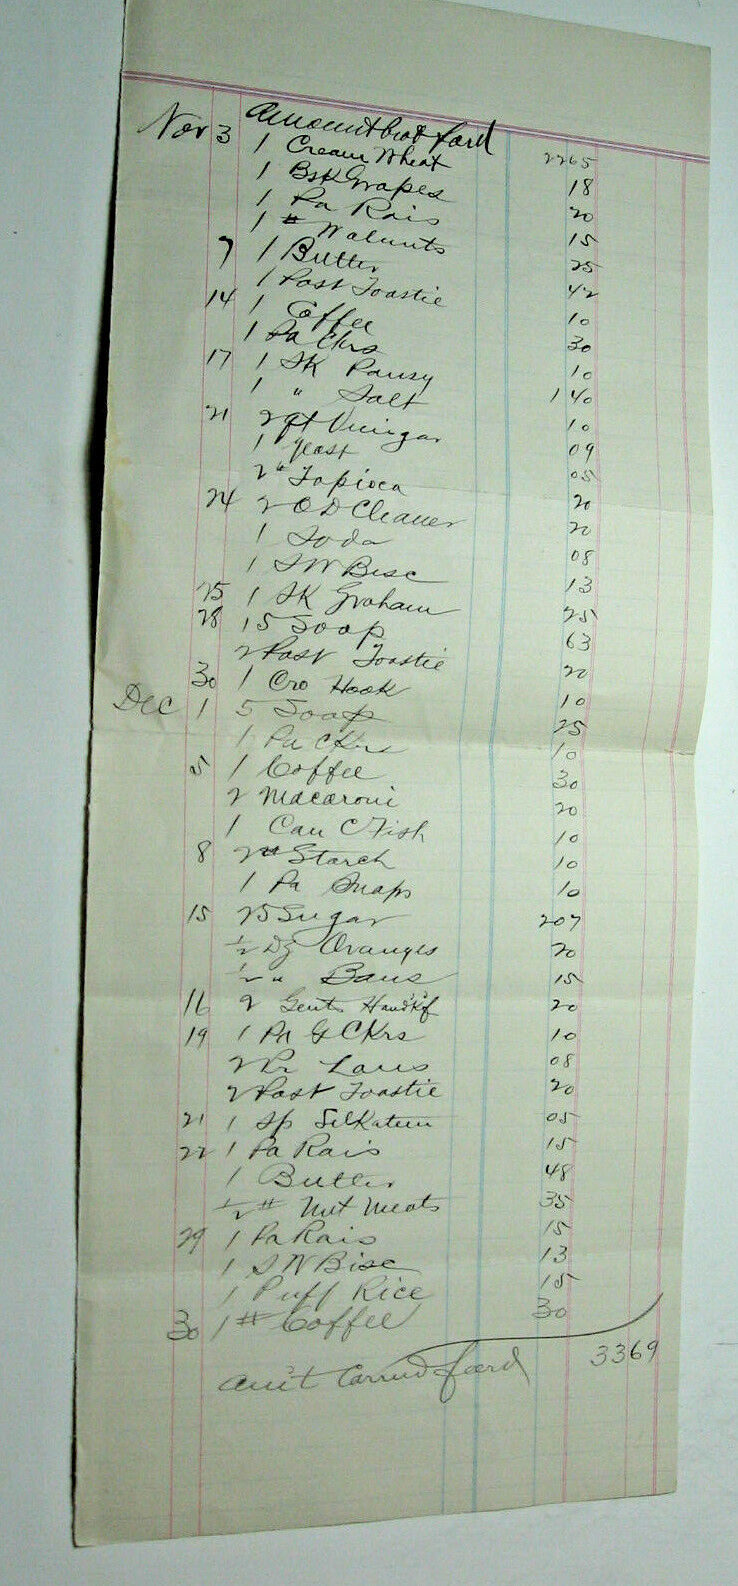 Amount brot ford 2265
Nov 3 1 Cream Wheat 18
1 Bsk Grapes 20
1 Pa Rais 15
1 # Walnuts 25
7 1 Butter 42
1 Post Toastie 10
14 1 Coffee 30
1 Pa Ckrs 10
17 1 SK Pansy 140
1 " Salt 10
21 2 qt Vinigar 09
1 Yeast 05
2 " Tapioca 20
24 2 O D Cleaner 20
1 Soda 08
1 S W Bisc 13
25 1 SK Graham 25
28 15 Soap 63
2 Post Toastie 20
30 1 Cro Hook 10
Dec 1 5 Soap 25
1 Pa Ckrs 10
5 1 Coffee 30
2 Macaroni 20
1 Can C Fish 10
8 2 # Starch 10
1 Pa Snaps 10
15 25 Sugar 207
1/2 Dz Oranges 20
1/2 " Bans 15
16 2 Gents Handk'f 20
19 1 Pa G Ckrs 10
2 Pr 08
2 Post Toastie 20
21 1 Sp Silkateen 05
22 1 Pa Rais 15
1 Butter 48
1/2 # Nut Meats 35
29 1 Pa Rais 15
1 S W Bisc 13
1 Puff Rice 15
30 1 # Coffee 30
Am't Carried ford 3369